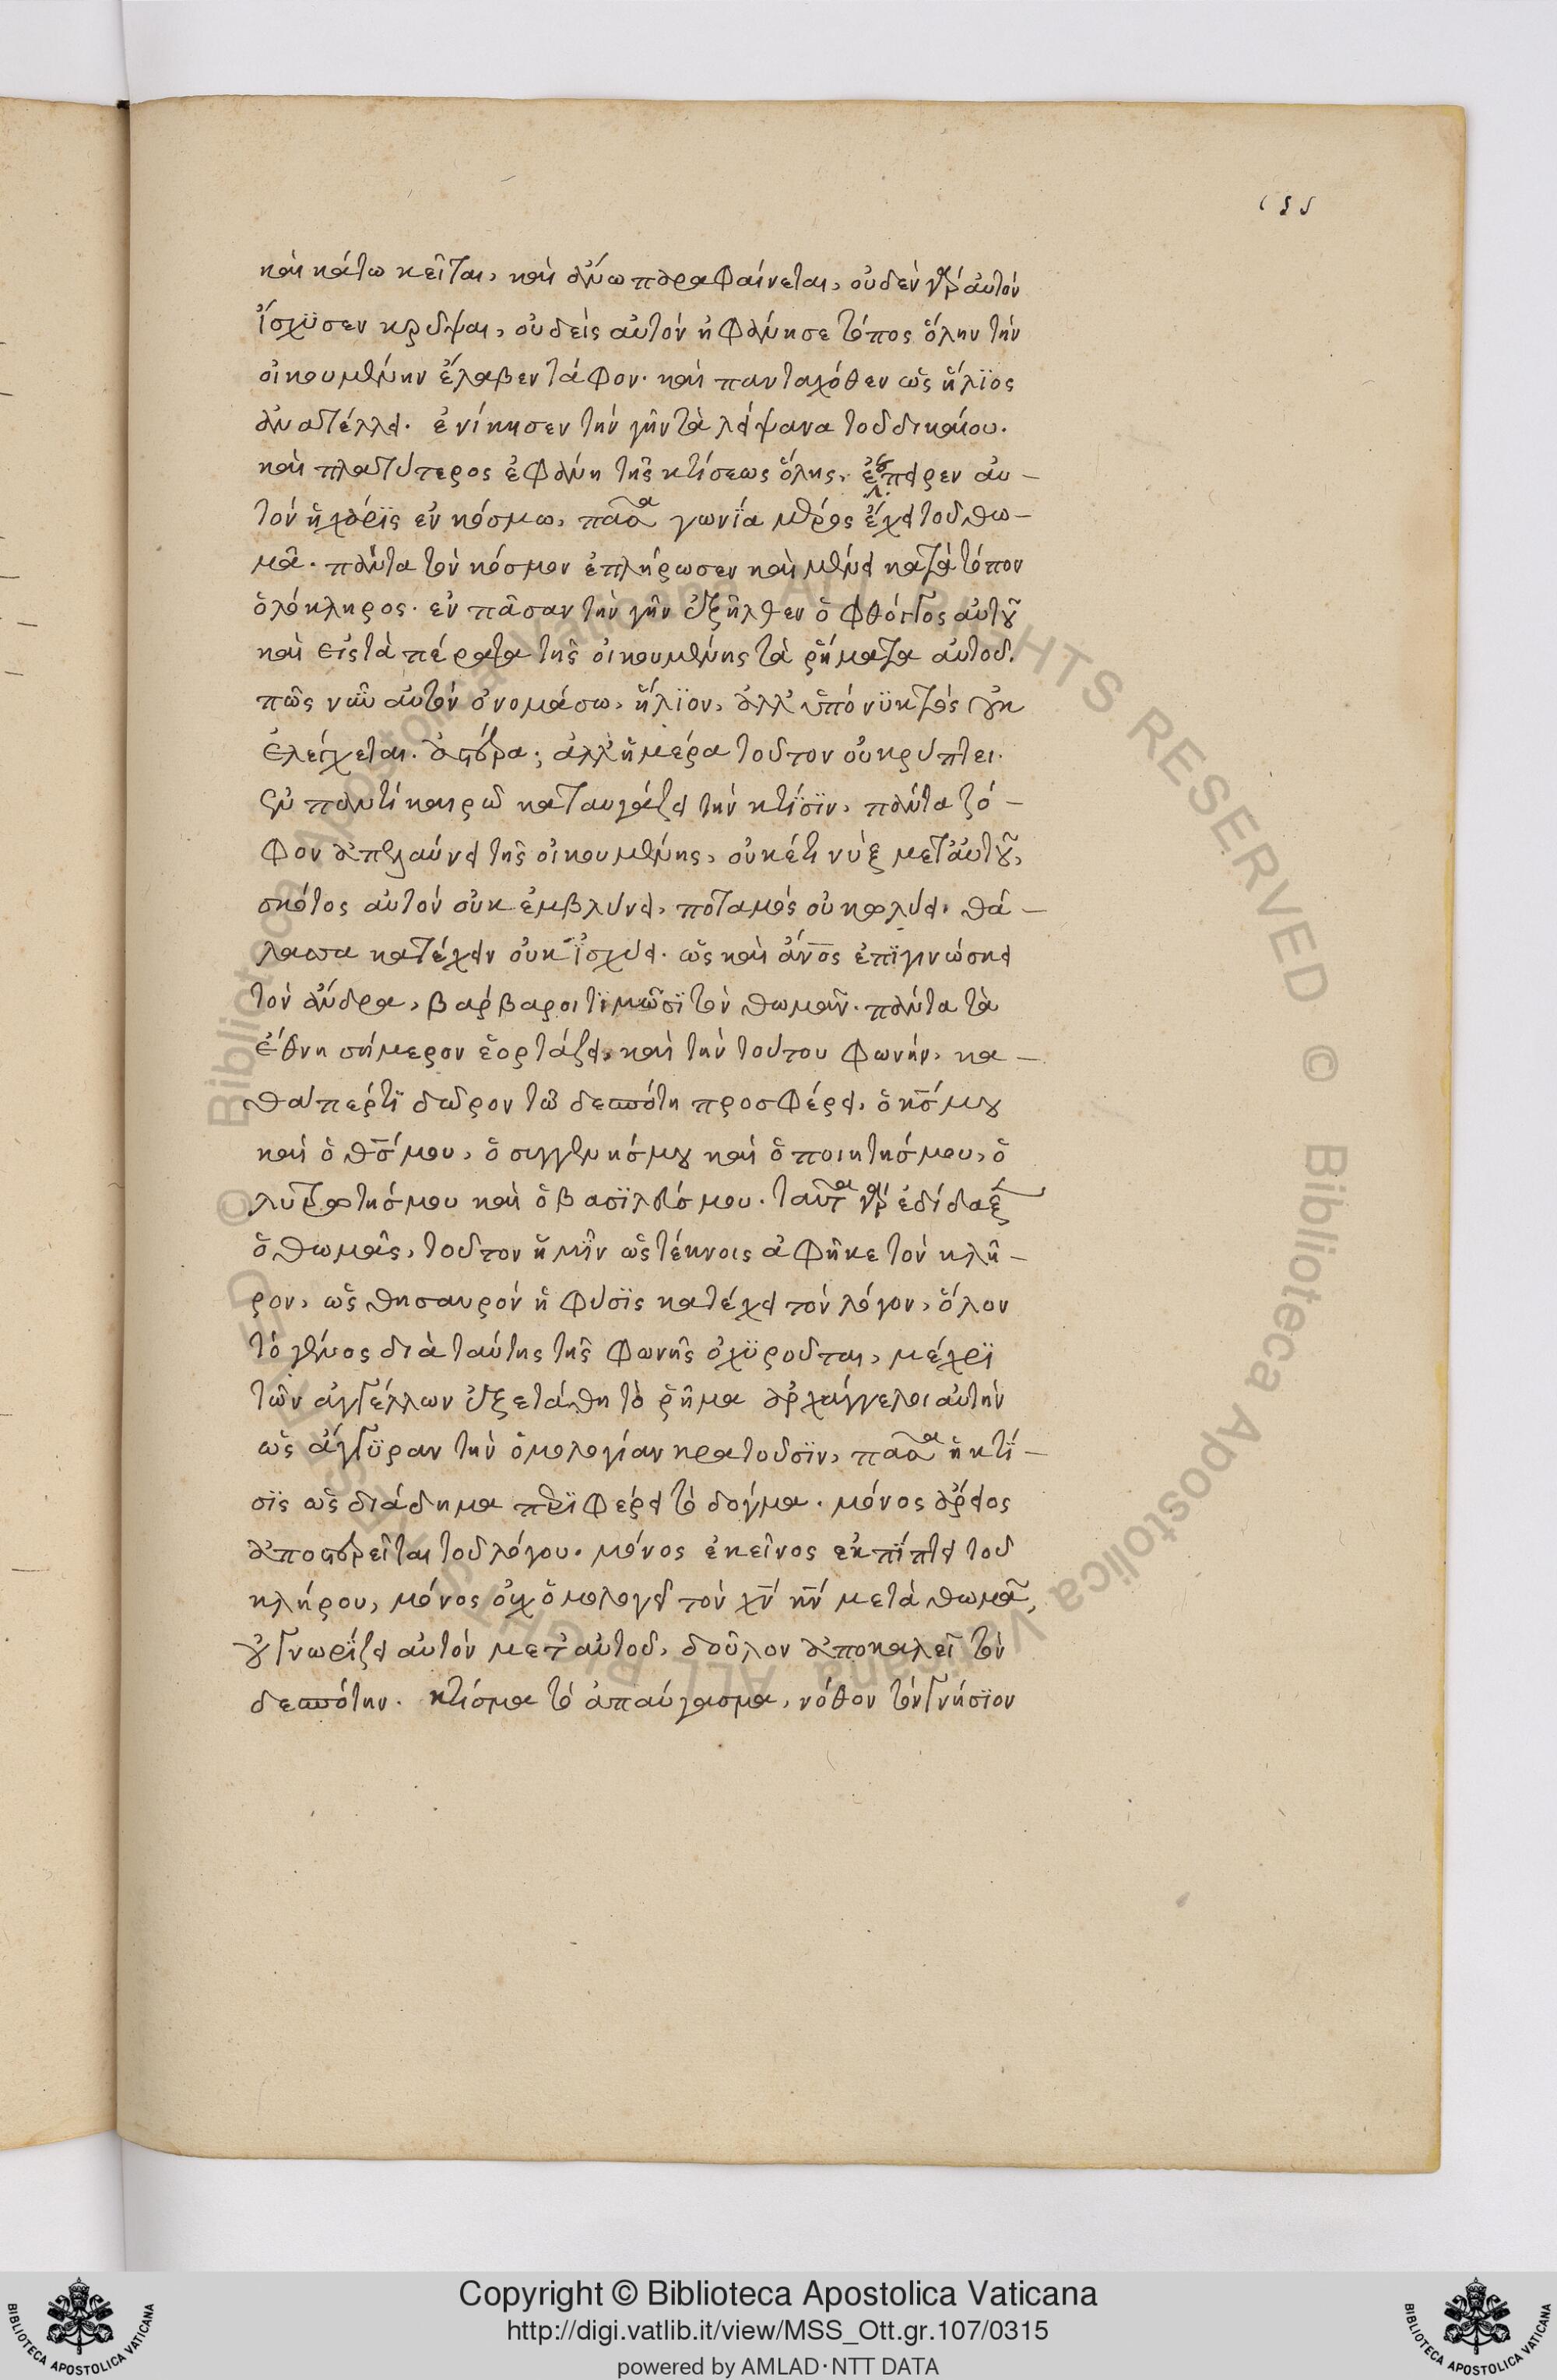 155
καὶ κάτω κεῖται, καὶ ἄνω παραφαίνεται, οὐδὲν γὰρ αὐτὸν
ἴσχϋσεν κρύψαι, οὐδεὶς αὐτὸν ἠφάνησε τόπος ὅλην τὴν
οἰκουμένην ἔλαβεν τάφον. καὶ πανταχόθεν ὡς ἥλϊος
ἀνατέλλει. ἐνίκησεν τὴν γῆν τὰ λείψανα τοῦ δικαίου.
καὶ πλατύτερος ἐφάνη τῆς κτίσεως ὅλης, ἔσπειρεν αὐ-
τὸν ἡ χάρϊς ἐν κόσμω, πᾶσα γωνϊά μέρος ἔχει τοῦ θω-
μᾶ. πάντα τὸν κόσμον ἐπλήρωσεν καὶ μένει κατὰ τόπον
ὁλόκληρος. ἐν πᾶσαν τὴν γῆν ἐξῆλθεν ὁ φθόγγος αὐτοῦ
καὶ εἰς τὰ πέρατα τῆς οἰκουμένης τὰ ῥήματα αὐτοῦ.
πῶς νῦν αὐτὸν ὀνομάσω, ἥλϊον, ἀλλ' ὑπὸ νϋκτὸς οὐκ
ἐλείχεται. ἀστέρα; ἀλλ' ἡμέρα τοῦτον οὐ κρύπτει.
ἐν παντὶ καιρῶ καταυγάζει τὴν κτίσϊν, πάντα ζό-
φον ἀπελαύνει τῆς οἰκουμένης, οὐκέτι νὺξ μετ' αὐτοῦ,
σκότος αὐτὸν οὐκ ἐμβλύνει, ποταμὸς οὐ κωλύει, θά-
λασσα κατέχειν οὐκ ἰσχύει. ὡς καὶ ἄνος ἐπϊγινώσκει
τὸν ἄνδρα, βάρβαροι τϊμῶσϊ τὸν θωμᾶν. πάντα τὰ
ἔθνη σήμερον ἑορτάζει, καὶ τὴν τούτου φωνήν, κα-
θάπερ τϊ δῶρον τῶ δεσπότη προσφέρει, ὁ κς μου
καὶ ὁ θς μου, ὁ συγγενής μου καὶ ὁ ποιητής μου, ὁ
λυτρωτής μου καὶ ὁ βασϊλεύς μου. ταῦτα γὰρ ἐδίδαξ
ὁ θωμᾶς, τοῦτον ἡμῖν ὡς τέκνοις ἀφῆκε τὸν κλῆ-
ρον, ὡς θησαυρὸν ἡ φύσϊς κατέχει τὸν λόγον, ὅλον
τὸ γένος διὰ ταύτης τῆς φωνῆς ὀχϋροῦται, μέχρϊ
τῶν ἀγγέλλων ἐξετάθη τὸ ῥῆμα ἀρχάγγελοι αὐτὴν
ὡς ἄγγϋραν τὴν ὁμολογίαν κρατοῦσϊν, πᾶσα ἡ κτί-
σϊς ὡς διάδημα περϊφέρει τὸ δόγμα. μόνος ἄρειος
ἀποστερεῖται τοῦ λόγου. μόνος ἐκεῖνος ἐκπίπτει τοῦ
κλήρου, μόνος οὐχ ὁμολογεῖ τὸν χν κν μετὰ θωμᾶ,
οὐ γνωρίζει αὐτὸν μετ' αὐτοῦ, δοῦλον ἀποκαλεῖ τὸν
δεσπότην. κτίσμα τὸ ἀπαύγασμα, νόθον τὸν γνήσϊον
Copyright © Biblioteca Apostolica Vaticana
http://digi.vatlib.it/view/MSS_Ott.gr.107/0315
powered by AMLAD·NTT DATA